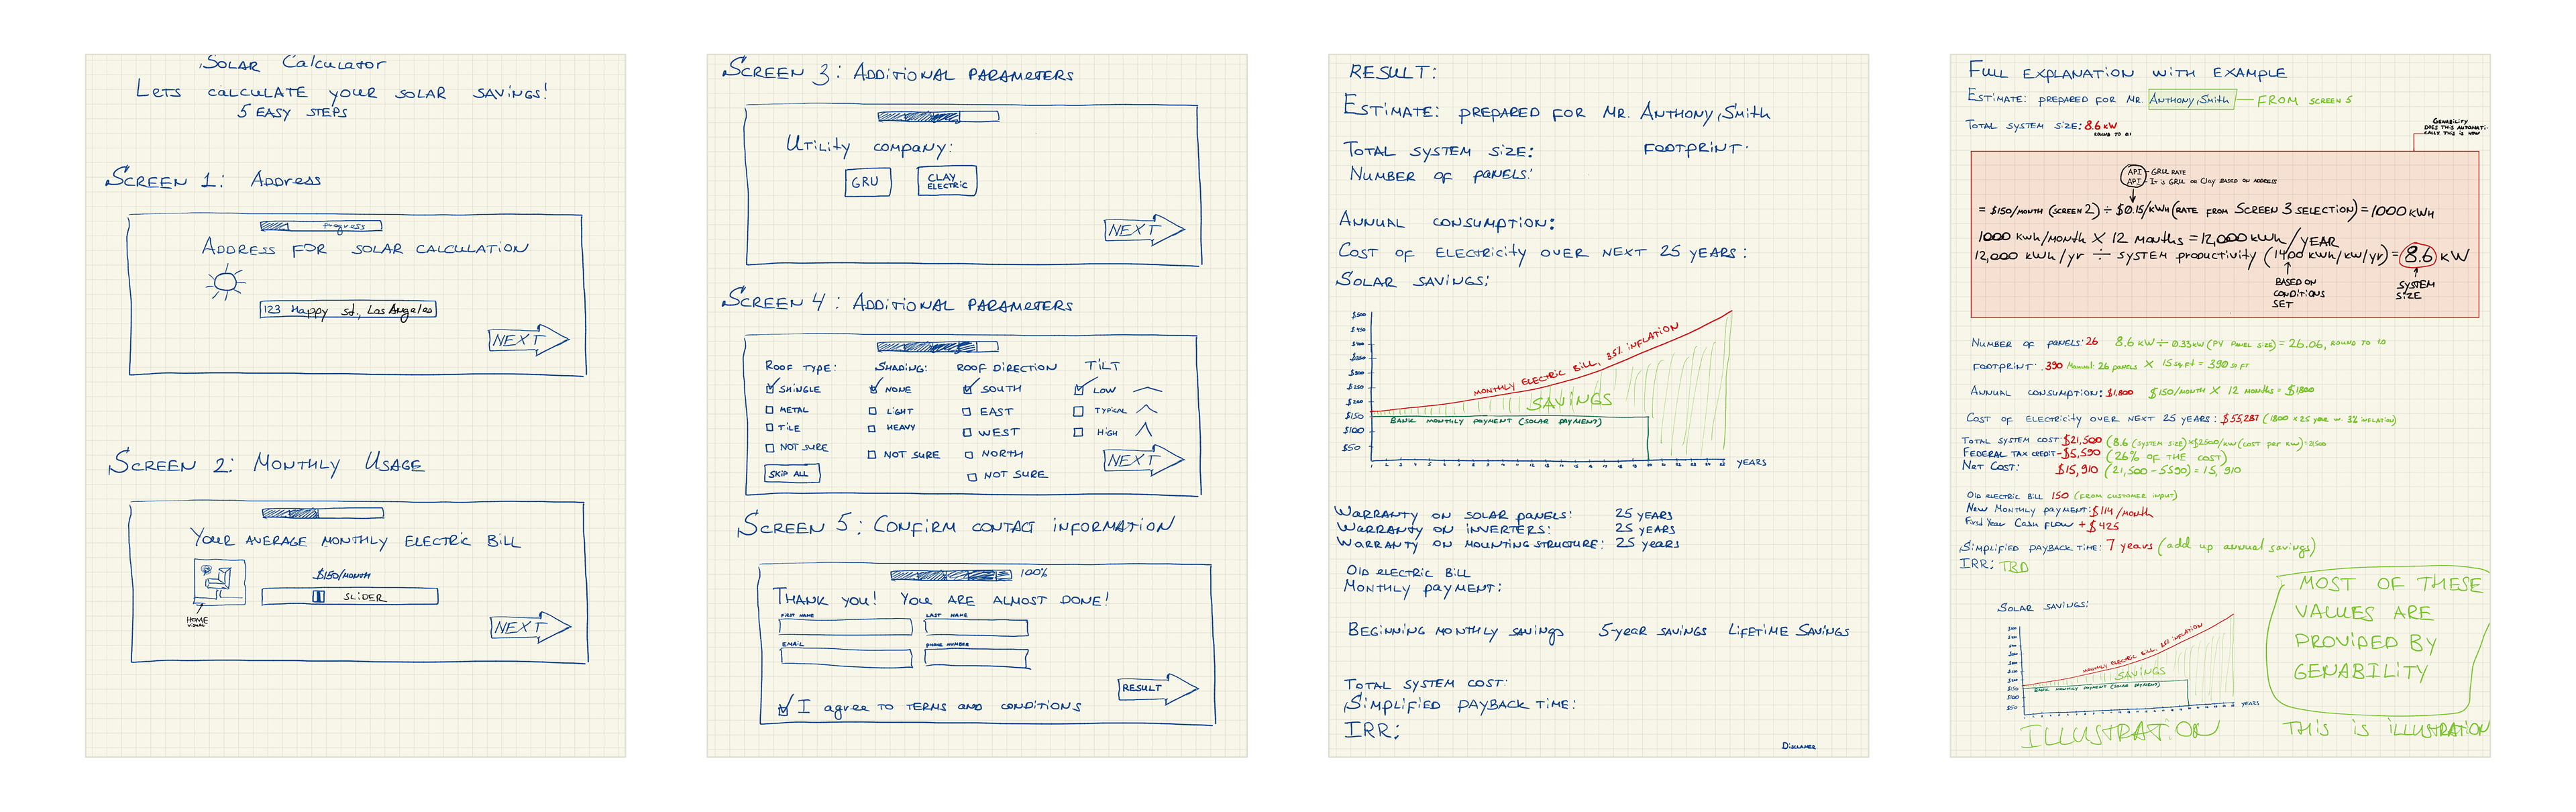 Solar Calculator
Lets calculate your solar savings!
5 easy steps
Screen 1: Address
Progress
Address for solar calculation
123 Happy st., Los Angeles
NEXT
Screen 2: Monthly Usage
Your average monthly electric bill
$150/month
SLIDER
HOME
VISUAL
NEXT
Screen 3: Additional parameters
Utility company:
GRU
CLAY
ELECTRIC
NEXT
Screen 4: Additional parameters
Roof type: Shading: Roof direction Tilt
Shingle None South Low
Metal Light East Typical
Tile Heavy West High
Not sure Not sure North
Skip all Not sure
NEXT
Screen 5: Confirm contact information
100%
Thank you! You are almost done!
First name Last name
Email Phone number
RESULT
I agree to terms and conditions
RESULT:
Estimate: prepared for Mr. Anthony, Smith
Total system size: Footprint:
Number of panels:
Annual consumption:
Cost of electricity over next 25 years:
Solar savings:
$500
$450
$400
$350
$300
$250
$200
$150
$100
$50
Monthly electric bill, 3.5% inflation
SAVINGS
Bank monthly payment (solar payment)
YEARS
Warranty on solar panels: 25 years
Warranty on inverters: 25 years
Warranty on mounting structure: 25 years
Old electric bill
Monthly payment:
Beginning monthly savings 5-year savings Lifetime Savings
Total system cost:
Simplified payback time:
IRR:
Full explanation with example
Estimate: prepared for Mr. Anthony, Smith — From screen 5
Total system size: 8.6 kW
Genability
does this automati-
cally this is now
API - GRU rate
API - It is GRU or Clay based on address
= $150/month (screen 2) ÷ $0.15/kWh (rate from Screen 3 selection) = 1000 kWh
1000 kWh/month x 12 months = 12,000 kWh/year
12,000 kWh/yr ÷ system productivity (1400 kWh/kw/yr) = 8.6 kW
Based on
conditions
set
System
size
Number of panels: 26 8.6 kW ÷ 0.33 kW (PV panel size) = 26.06, round to
Footprint: 390 26 panels x 15 sq ft = 390 sq ft
Annual consumption: $1,800 $150/month x 12 months = $1800
Cost of electricity over next 25 years: $55,287 (1800 x 25 year 3% inflation)
Total system cost: $21,500 (8.6 (system size) x $2500/kW (cost per kW) = 21,500
Federal tax credit - $5,590 (26% of the cost)
Net Cost: $15,910 (21,500 - 5590) = 15,910
Old electric bill 150 (from customer input)
New monthly payment: $114/month
First Year Cash flow + $425
Simplified payback time: 7 years (add up annual savings)
IRR: TBD
MOST OF THESE
VALUES ARE
PROVIDED BY
GENABILITY
Solar savings:
SAVINGS
Bank monthly payment (solar payment)
YEARS
ILLUSTRATION
THIS IS ILLUSTRATION